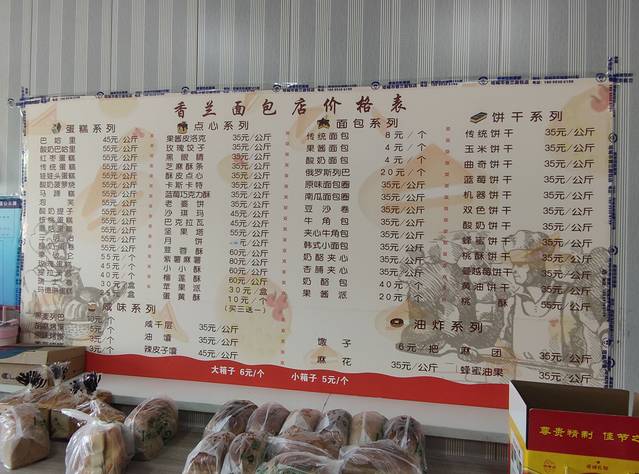 香兰面包店价格表
蛋糕系列
巴哈里 45元/公斤
酸奶巴哈里 55元/公斤
红枣蛋糕 55元/公斤
传统蛋糕
娃娃头蛋糕
酸奶菠萝烧
马蹄糕
泡芙
点心系列
果酱皮洛克 35元/公斤
玫瑰饺子 35元/公斤
黑眼睛 35元/公斤
芝麻酥条 35元/公斤
酥皮点心 35元/公斤
卡斯卡特 35元/公斤
蓝莓巧克力酥 35元/公斤
老婆饼 35元/公斤
沙琪玛 45元/公斤
巴克拉瓦 55元/公斤
坚果塔 55元/公斤
月饼
豆蓉酥 60元/公斤
紫薯麻薯 60元/公斤
小小酥 60元/公斤
榴莲酥 30元/盒
苹果派
蛋黄酥 10元/个
(买三送一)
面包系列
传统面包 8元/个
果酱面包 4元/个
酸奶面包 4元/个
俄罗斯列巴 20元/个
原味面包圈 35元/公斤
南瓜面包圈 35元/公斤
豆沙卷 35元/公斤
牛角包 35元/公斤
夹心牛角包 35元/公斤
韩式小面包 35元/公斤
奶酪夹心 35元/公斤
杏脯夹心 35元/公斤
奶酪包 40元/个
果酱派 20元/个
饼干系列
传统饼干 35元/公斤
玉米饼干 35元/公斤
曲奇饼干 35元/公斤
蓝莓饼干 35元/公斤
机器饼干 35元/公斤
双色饼干 35元/公斤
酸奶饼干 35元/公斤
蜂蜜饼干 35元/公斤
桃酥饼干 35元/公斤
蔓越莓饼干 35元/公斤
黄油饼干 35元/公斤
桃酥 55元/公斤
咸味系列
咸千层 35元/公斤
油馕 35元/公斤
辣皮子馕 45元/公斤
油炸系列
馓子 6元/把
麻花 35元/公斤
麻团 35元/公斤
蜂蜜油果 35元/公斤
大箱子 6元/个 小箱子 5元/个
尊贵精制 佳节之